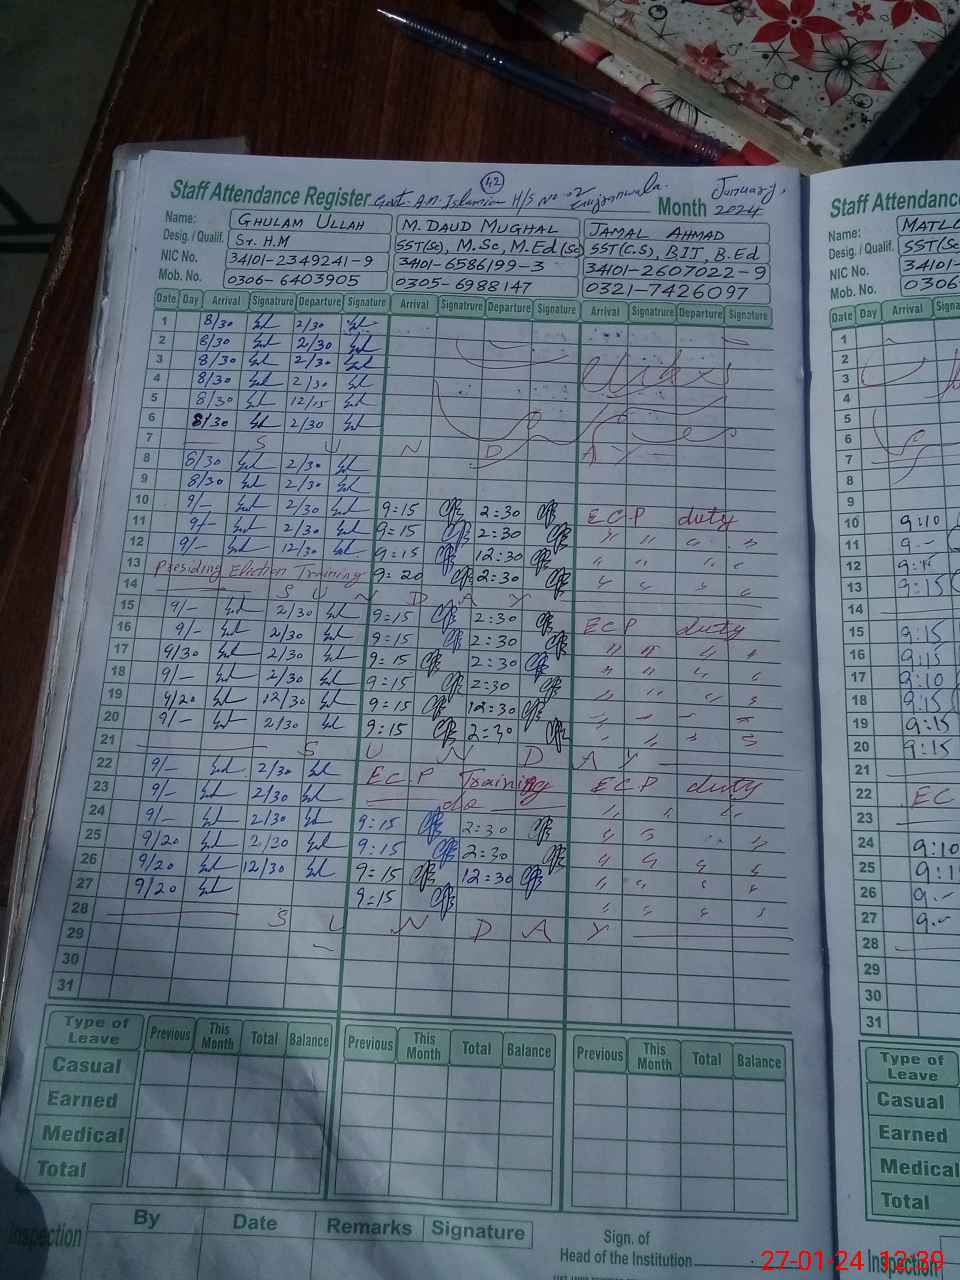 42
Staff Attendance Register Govt. A.M. Islamia H/S No. 2 Gujranwala. Month January, 2024
Name: GHULAM ULLAH M. DAUD MUGHAL JAMAL AHMAD
Desig. / Qualif. Sr. H.M SST(Sc), M.Sc, M.Ed(Sc) SST(C.S), BIT, B.Ed
NIC No. 34101-2349241-9 34101-6586199-3 34101-2607022-9
Mob. No. 0306-6403905 0305-6988147 0321-7426097
Date Day Arrival Signature Departure Signature Arrival Signatrure Departure Signature Arrival Signatrure Departure Signature
1 8/30 2/30
2 8/30 2/30
3 8/30 2/30
4 8/30 2/30
5 8/30 12/15
6 8/30 2/30
7 S U N D A Y
8 8/30 2/30
9 8/30 2/30
10 9/- 2/30 9:15 2:30 ECP duty
11 9/- 2/30 9:15 2:30 " " " "
12 9/- 12/30 9:15 12:30 " " " "
13 Presiding Eliction Training 9:20 2:30 " " " "
14 S U N D A Y
15 9/- 2/30 9:15 2:30 ECP duty
16 9/- 2/30 9:15 2:30 " " " "
17 9/30 2/30 9:15 2:30 " " " "
18 9/- 2/30 9:15 2:30 " " " "
19 9/20 12/30 9:15 12:30 " " " "
20 9/- 2/30 9:15 2:30 " " " "
21 S U N D A Y
22 9/- 2/30 ECP Training ECP duty
23 9/- 2/30 do " " " "
24 9/- 2/30 9:15 2:30 " " " "
25 9/20 2/30 9:15 2:30 " " " "
26 9/20 12/30 9:15 12:30 " " " "
27 9/20 9:15 " " " "
28 S U N D A Y
29
30
31
Type of Leave Previous This Month Total Balance Previous This Month Total Balance Previous This Month Total Balance
Casual
Earned
Medical
Total
Inspection By Date Remarks Signature
Sign. of
Head of the Institution
Staff Attendance
Name: MATLO
Desig. / Qualif. SST(Sc
NIC No. 34101-
Mob. No. 0306
Date Day Arrival Signa
1
2
3
4
5
6
7
8
9
10 9:10
11 9:-
12 9:15
13 9:15
14
15 9:15
16 9:15
17 9:10
18 9:15
19 9:15
20 9:15
21
22 EC
23
24 9:10
25 9:1
26 9:-
27 9:-
28
29
30
31
Type of Leave
Casual
Earned
Medical
Total
Inspection
27-01-24 12:39